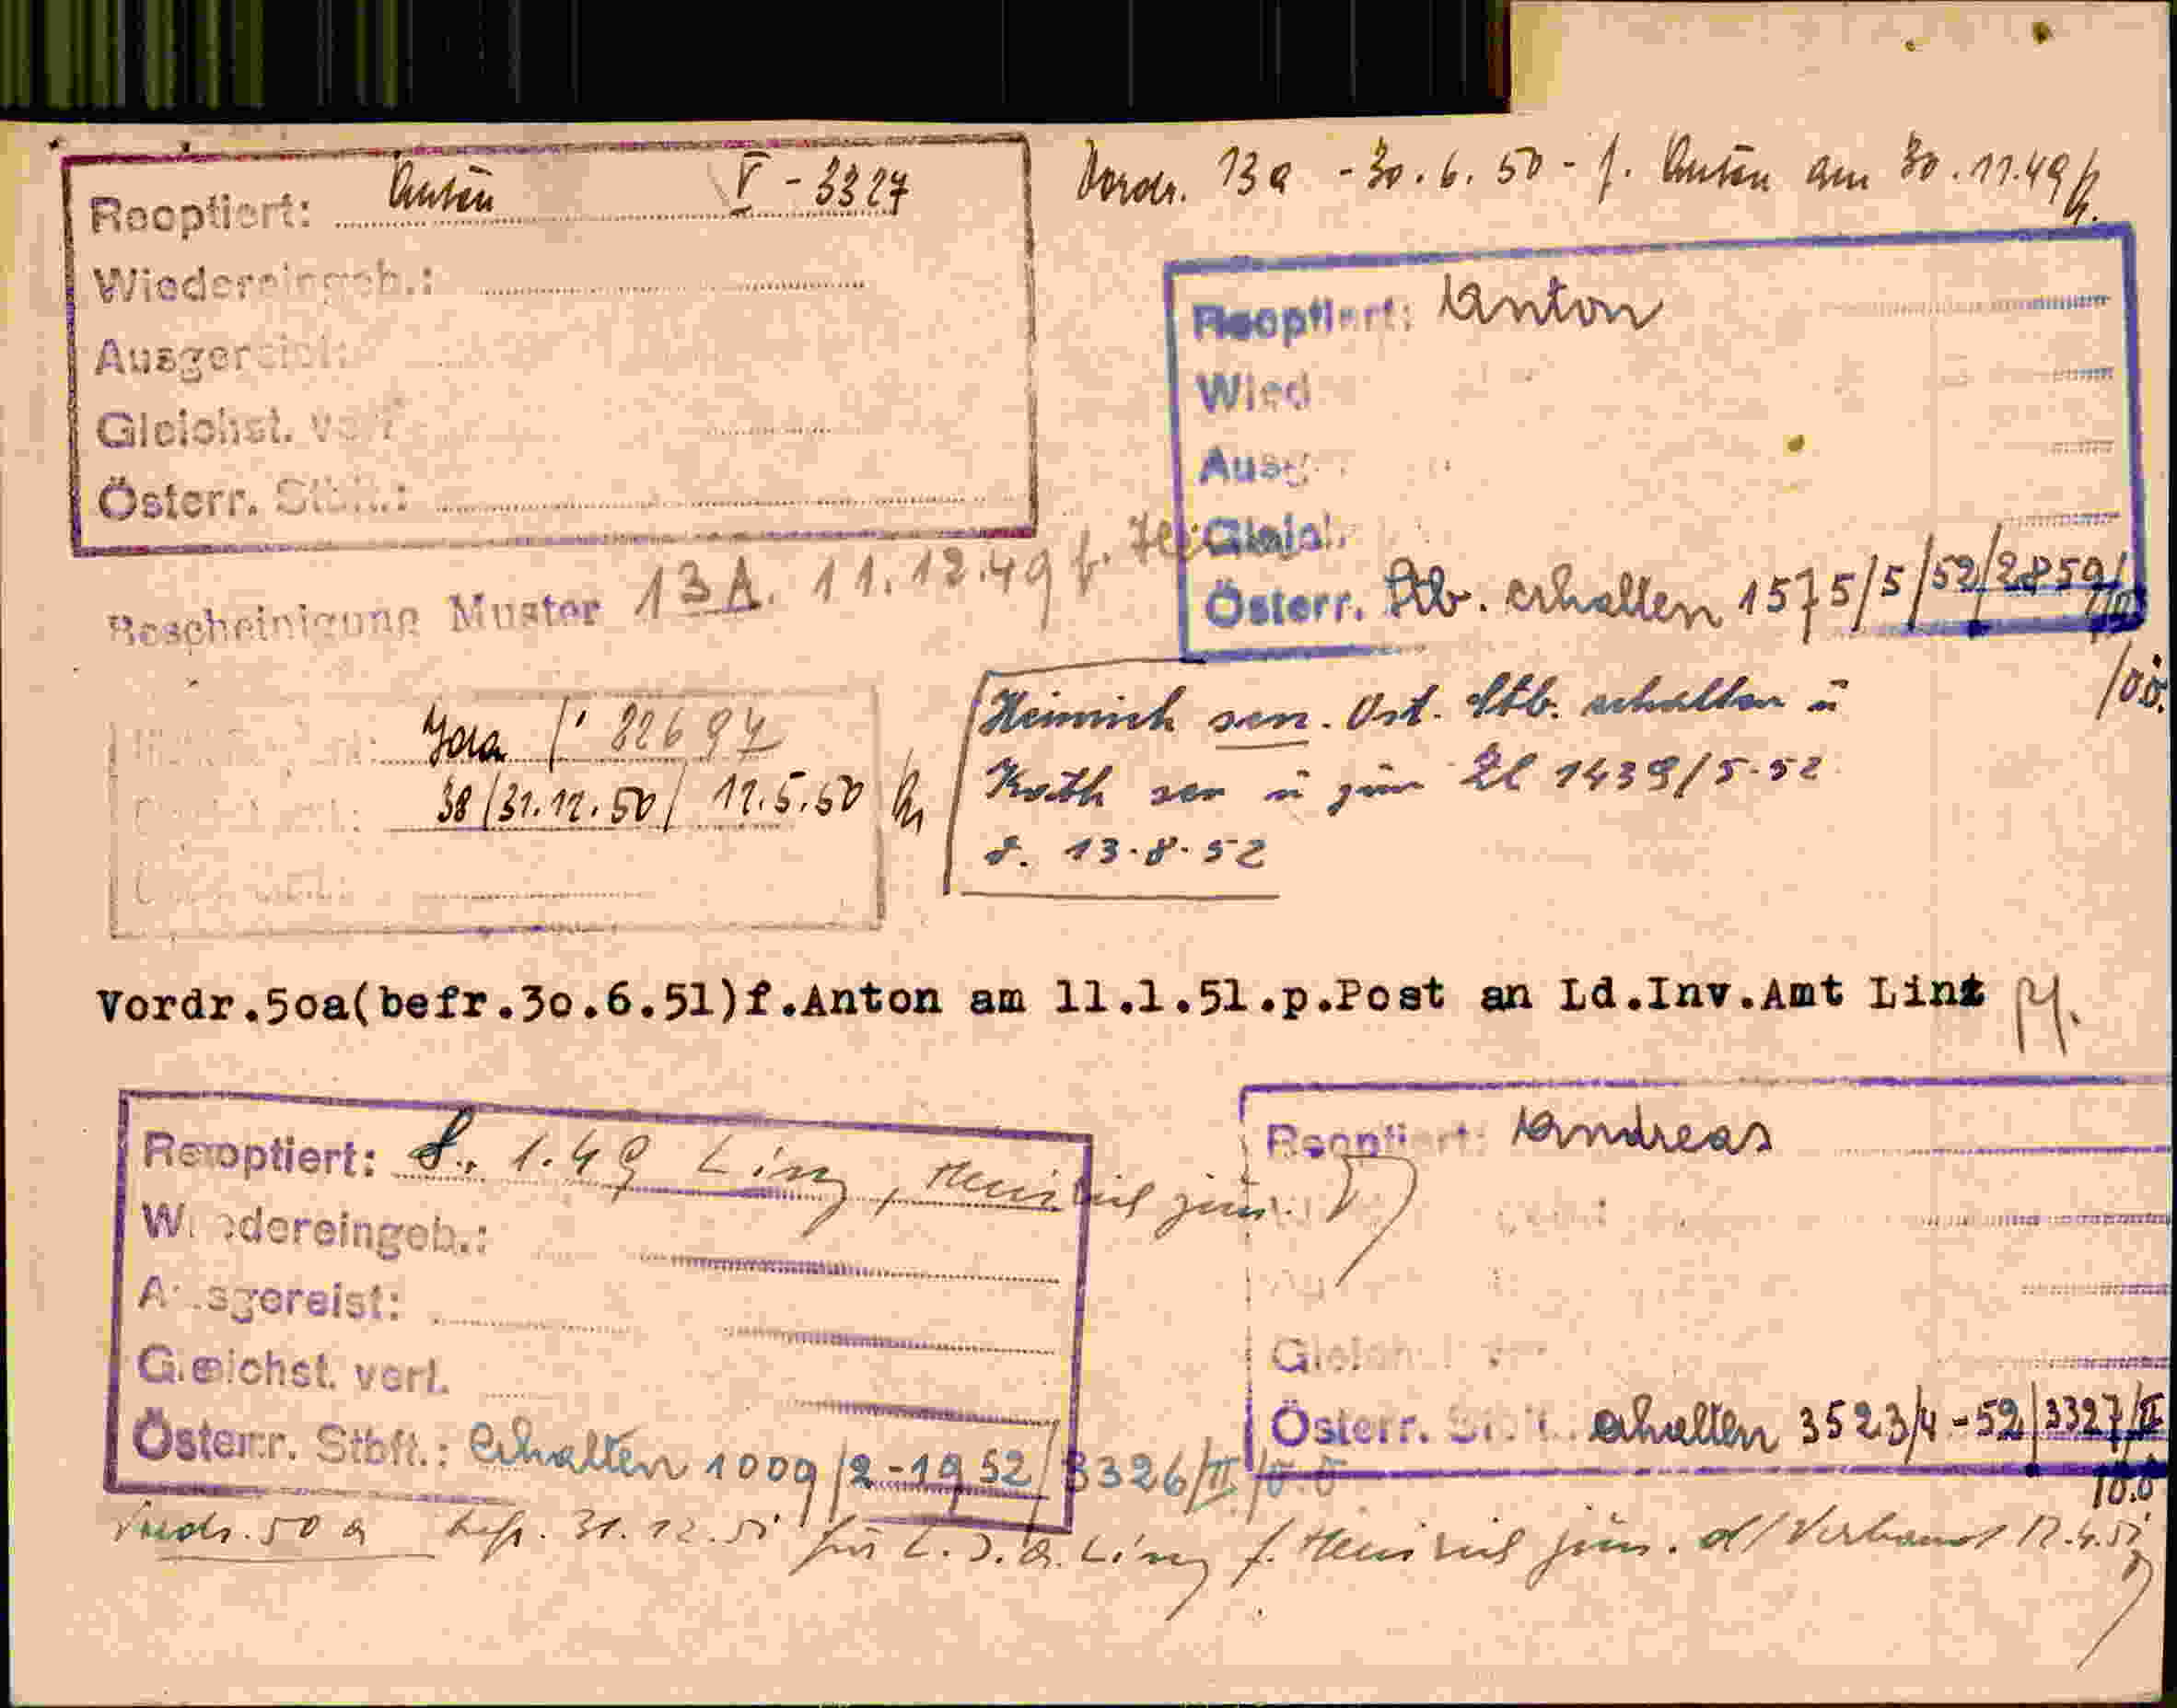 Reoptiert: Anton V - 3327
Wiedereingeb.:
Ausgereist:
Gleichst. verl.
Österr. Stbft.:
Vordr. 13a - 30.6.50 - f. Anton am 30.11.49
Reoptiert: Anton
Wied
Ausg
Gleich
Österr. Stb. erhalten 1575/5/52/2859/
/oö.
Bescheinigung Muster 13A. 11.12.49 f.
82697
38/31.12.50/ 11.5.50
Heinrich sen. Öst. Stb. erhalten u
Kath sen u jun Zl 1439/5-52
13.8.52
Vordr.5oa(befr.3o.6.51)f.Anton am 11.1.51.p.Post an Ld.Inv.Amt Linz
Reoptiert: 8. 1.49 Linz, Heinrich jun.
Wiedereingeb.:
Ausgereist:
Gleichst. verl.
Österr. Stbft.: erhalten 1009/2-1952/3326/II/o.ö
Reoptiert: Andreas
Gleich
Österr. erhalten 3523/4-52/3327/II
/o.ö
Vordr. 50 a befr. 31.12.51 für L.I.A. Linz f. Heinrich jun. 12.4.51